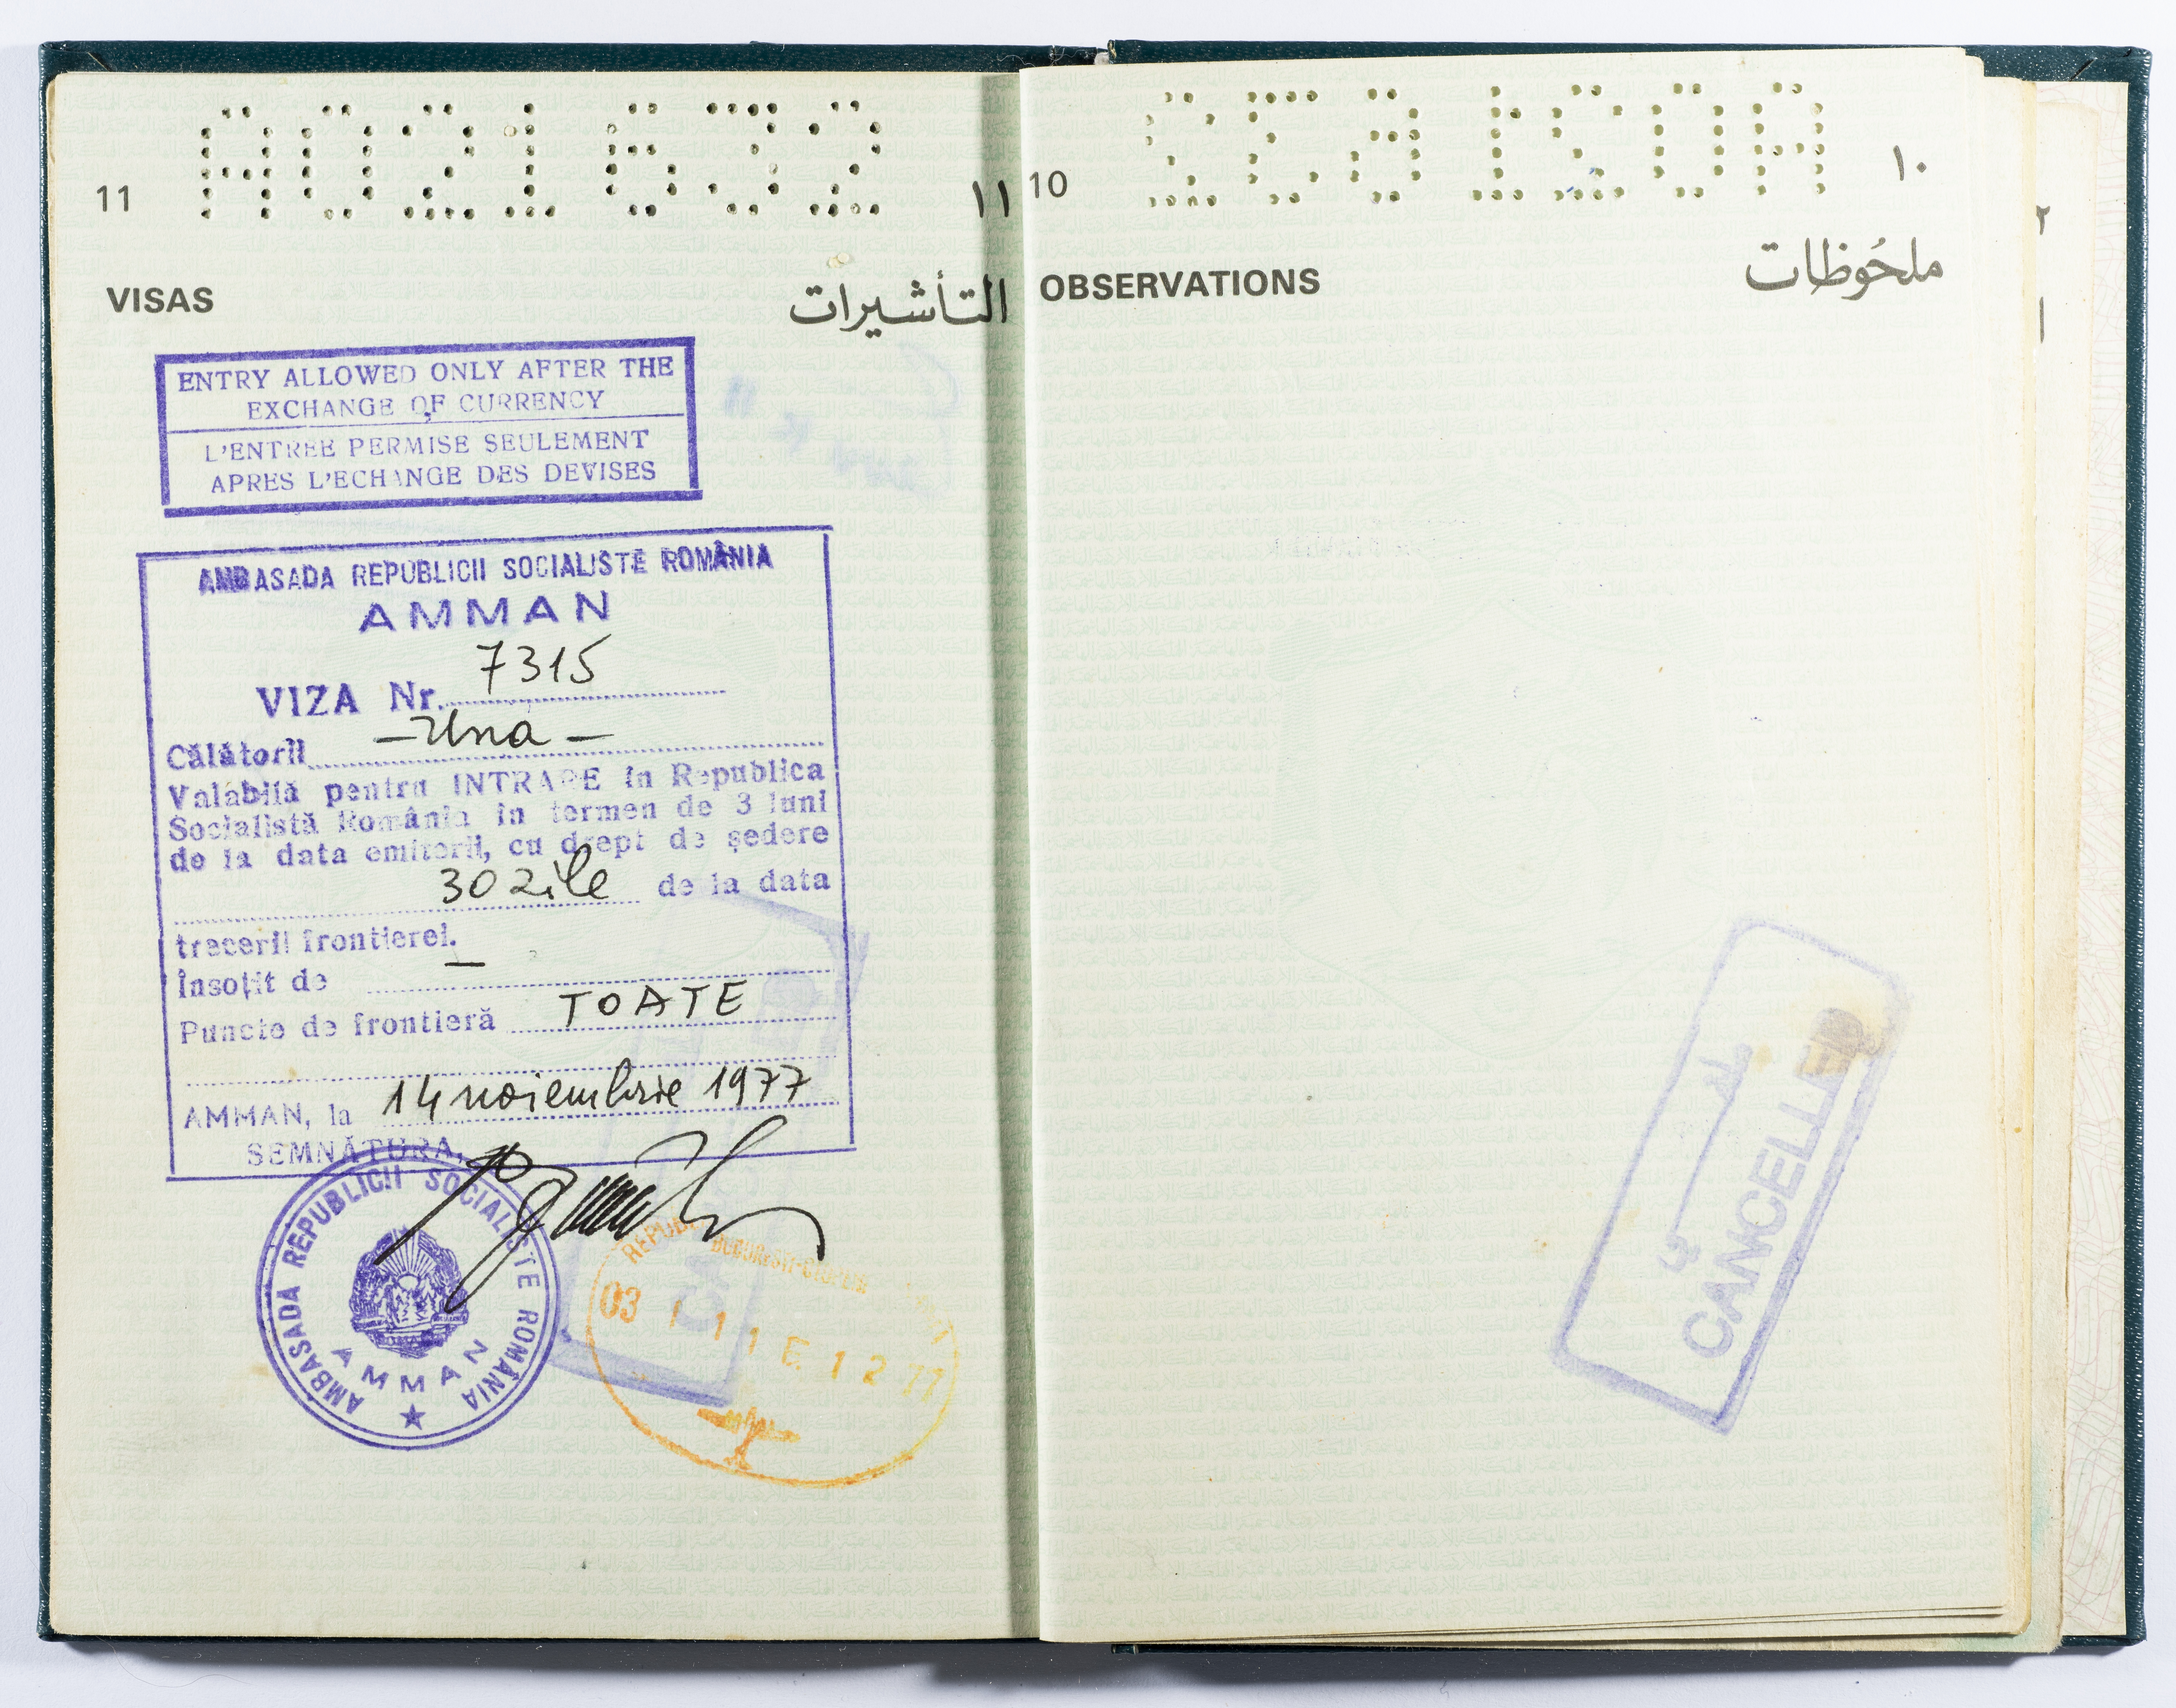 A021632
11
١١
VISAS
التأشيرات
ENTRY ALLOWED ONLY AFTER THE
EXCHANGE OF CURRENCY
L'ENTREE PERMISE SEULEMENT
APRES L'ECHANGE DES DEVISES
AMBASADA REPUBLICII SOCIALISTE ROMÂNIA
AMMAN
VIZA Nr. 7315
Călătorii – Una –
Valabilă pentru INTRARE în Republica
Socialistă România în termen de 3 luni
de la data emiterii, cu drept de ședere
30 zile de la data
trecerii frontierei.
Însoțit de –
Puncte de frontieră TOATE
AMMAN, la 14 noiembrie 1977
SEMNĂTURA,
AMBASADA REPUBLICII SOCIALISTE ROMÂNIA
AMMAN
BUCUREȘTI-OTOPENI
03 I 11 E 12 77
10
١٠
OBSERVATIONS
ملحُوظات
ملغى
CANCELLED